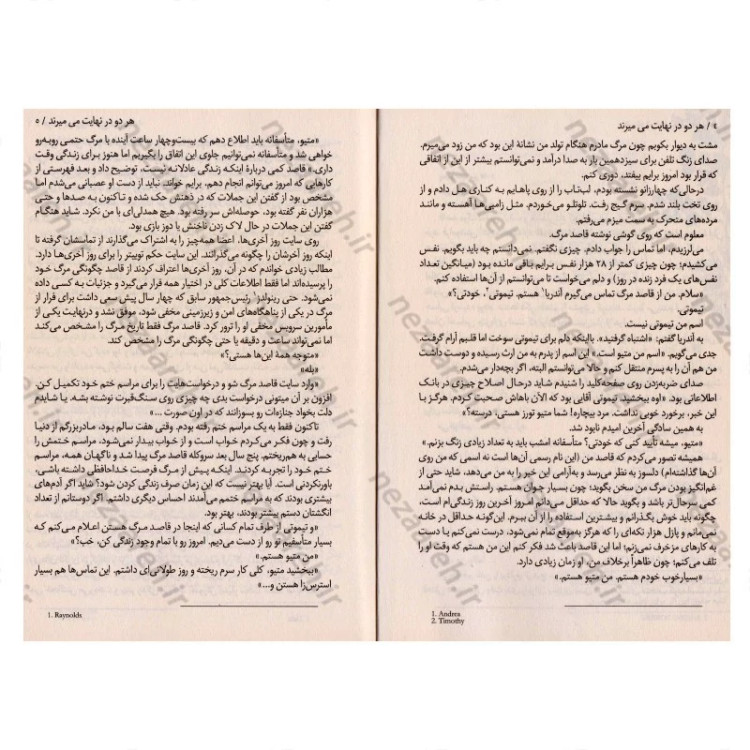 ٤ / هر دو در نهایت می میرند
مشت به دیوار بگویم چون مرگ مادرم هنگام تولد من نشانهٔ این بود که من زود می‌میرم.
صدای زنگ تلفن برای سیزدهمین بار به صدا درآمد و نمی‌توانستم بیشتر از این از اتفاقی
که قرار بود امروز برایم بیفتد، دوری کنم.
درحالی‌که چهارزانو نشسته بودم، لپ‌تاب را از روی پاهایم به کناری هل دادم و از
روی تخت بلند شدم. سرم گیج رفت. تلوتلو می‌خوردم. مثل زامبی‌ها آهسته و مانند
مرده‌های متحرک به سمت میزم می‌رفتم.
معلوم است که روی گوشی نوشته قاصد مرگ.
می‌لرزیدم، اما تماس را جواب دادم. چیزی نگفتم. نمی‌دانستم چه باید بگویم. نفس
می‌کشیدم؛ چون چیزی کمتر از ۲۸ هزار نفس برایم باقی مانده بود (میانگین تعداد
نفس‌های یک فرد زنده در روز) و دلم می‌خواست تا می‌توانستم از آن‌ها استفاده کنم.
«سلام. من از قاصد مرگ تماس می‌گیرم آندریا۱ هستم. تیموتی۲، خودتی؟»
تیموتی.
اسم من تیموتی نیست.
به آندریا گفتم: «اشتباه گرفتید». بااینکه دلم برای تیموتی سوخت اما قلبم آرام گرفت.
جدی می‌گویم. «اسم من متیو است.» این اسم از پدرم به من ارث رسیده و دوست داشت
من هم آن را به پسرم منتقل کنم و حالا می‌توانستم البته، اگر بچه‌دار می‌شدم.
صدای ضربه‌زدن روی صفحه‌کلید را شنیدم شاید درحال اصلاح چیزی در بانک
اطلاعاتی بود. «اوه ببخشید تیموتی آقایی بود که الآن باهاش صحبت کردم. هرگز با
این خبر، برخورد خوبی نداشت. مرد بیچاره! شما متیو تورز هستی، درسته؟»
به همین سادگی آخرین امیدم نابود شد.
«متیو، میشه تأیید کنی که خودتی؟ متأسفانه امشب باید به تعداد زیادی زنگ بزنم.»
همیشه تصور می‌کردم که قاصد من (این نام رسمی آن‌ها است نه اسمی که من روی
آن‌ها گذاشته‌ام) دلسوز به نظر می‌رسد و به‌آرامی این خبر را به من می‌دهد، شاید حتی از
غم‌انگیز بودن مرگ من سخن بگوید؛ چون بسیار جوان هستم. راستش بدم نمی‌آمد
کمی سرحال‌تر باشد و بگوید حالا که حداقل می‌دانم امروز آخرین روز زندگی‌ام است،
چگونه باید خوش بگذرانم و بیشترین استفاده را از آن ببرم. این‌گونه حداقل در خانه
نمی‌مانم و پازل هزار تکه‌ای را که هرگز به‌موقع تمام نمی‌شود، درست نمی‌کنم یا دست
به کارهای مزخرف نمی‌زنم؛ اما این قاصد باعث شد فکر کنم این من هستم که وقت او را
تلف می‌کنم؛ چون ظاهراً برخلاف من، او زمان زیادی دارد.
«بسیارخوب خودم هستم. من متیو هستم.»
1. Andrea
2. Timothy
هر دو در نهایت می میرند / ٥
«متیو، متأسفانه باید اطلاع دهم که بیست‌وچهار ساعت آینده با مرگ حتمی روبه‌رو
خواهی شد و متأسفانه نمی‌توانیم جلوی این اتفاق را بگیریم اما هنوز برای زندگی وقت
داری.» قاصد کمی دربارهٔ اینکه زندگی عادلانه نیست، توضیح داد و بعد فهرستی از
کارهایی که امروز می‌توانم انجام دهم، برایم خواند. نباید از دست او عصبانی می‌شدم اما
مشخص بود از گفتن این جملات که در ذهنش حک شده و تاکنون به صدها و حتی
هزاران نفر گفته بود، حوصله‌اش سر رفته بود. هیچ همدلی‌ای با من نکرد. شاید هنگام
گفتن این جملات در حال لاک زدن ناخنش یا دوز بازی بود.
روی سایت روز آخری‌ها، اعضا همه‌چیز را به اشتراک می‌گذارند از تماسشان گرفته تا
اینکه روز آخرشان را چگونه می‌گذرانند. این سایت حکم توییتر را برای روز آخری‌ها دارد.
مطالب زیادی خواندم که در آن، روز آخری‌ها اعتراف کردند از قاصد چگونگی مرگ خود
را پرسیده‌اند اما فقط اطلاعات کلی در اختیار همه قرار می‌گیرد و جزئیات به کسی داده
نمی‌شود. حتی رینولدز۱ رئیس‌جمهور سابق که چهار سال پیش سعی داشت برای فرار از
مرگ در یکی از پناهگاه‌های امن و زیرزمینی مخفی شود، موفق نشد و درنهایت یکی از
مأمورین سرویس مخفی او را ترور کرد. قاصد مرگ فقط تاریخ مرگ را مشخص می‌کند
اما نمی‌تواند ساعت و دقیقه یا حتی چگونگی مرگ را مشخص کند.
«متوجه همهٔ این‌ها هستی؟»
«بله»
«وارد سایت قاصد مرگ شو و درخواست‌هایت را برای مراسم ختم خود تکمیل کن.
افزون بر آن میتونی درخواست بدی چه چیزی روی سنگ‌قبرت نوشته بشه. یا شایدم
دلت بخواد جنازه‌ات رو بسوزانند که در اون صورت ...»
تاکنون فقط به یک مراسم ختم رفته بودم. وقتی هفت سالم بود، مادربزرگم از دنیا
رفت و چون فکر می‌کردم خواب است و از خواب بیدار نمی‌شود، مراسم ختمش را
حسابی به هم‌ریختم. پنج سال بعد سروکله قاصد مرگ پیدا شد و ناگهان همه، مراسم
ختم خود را تجربه کردند. اینکه پیش از مرگ فرصت خداحافظی داشته باشی،
باورنکردنی است. آیا بهتر نیست که این زمان صرف زندگی کردن شود؟ شاید اگر آدم‌های
بیشتری بودند که به مراسم ختمم می‌آمدند احساس دیگری داشتم. اگر دوستانم از تعداد
انگشتان دستم بیشتر بودند، بهتر بود.
«و تیموتی از طرف تمام کسانی که اینجا در قاصد مرگ هستن اعلام می‌کنم که
بسیار متأسفیم تو رو از دست می‌دیم. امروز رو با تمام وجود زندگی کن، خب؟»
«من متیو هستم.»
«ببخشید متیو، کلی کار سرم ریخته و روز طولانی‌ای داشتم. این تماس‌ها هم بسیار
استرس‌زا هستن و...»
1. Raynolds
nezarreh.ir